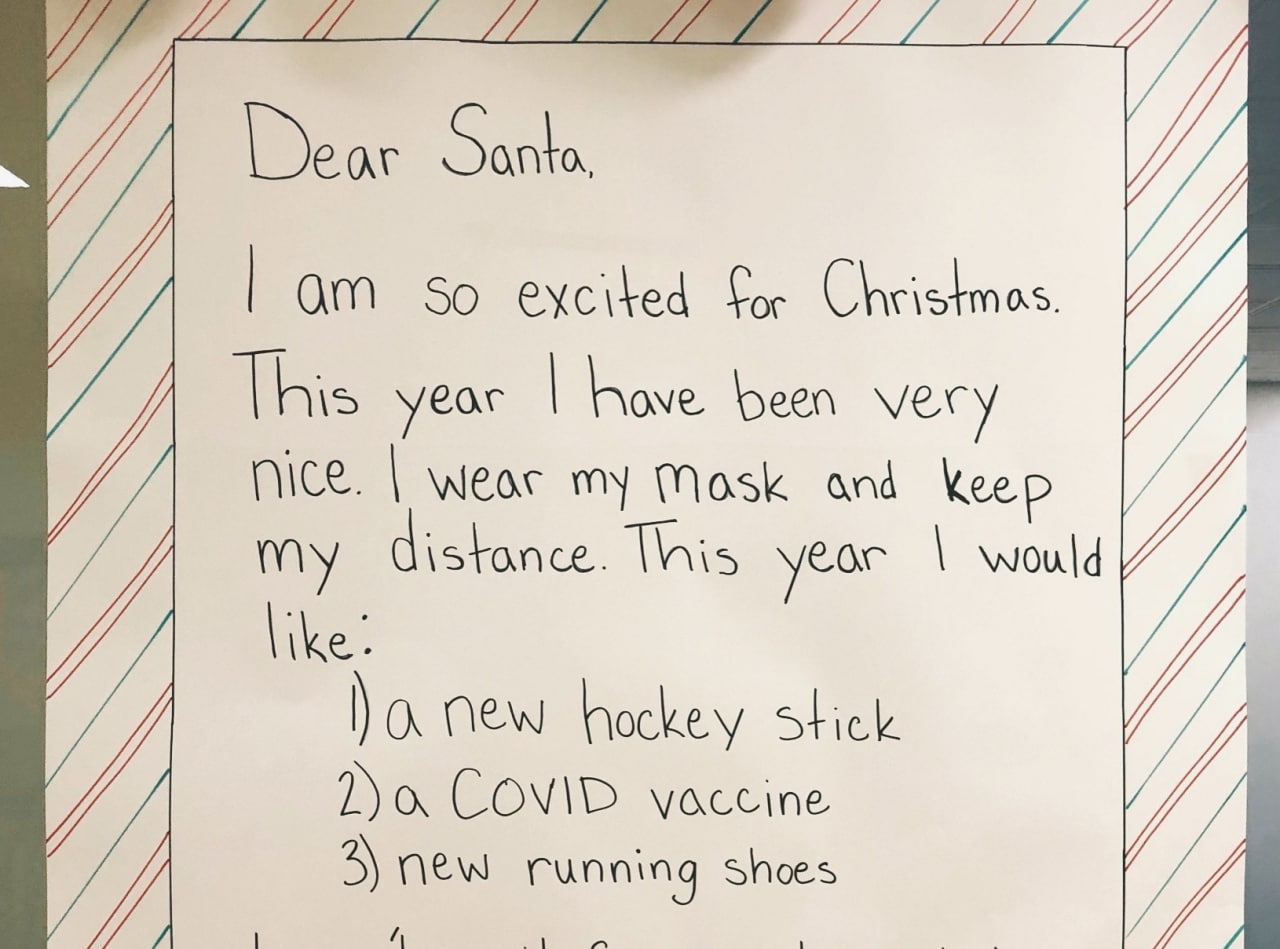 Dear Santa,
I am so excited for Christmas.
This year I have been very
nice. I wear my mask and keep
my distance. This year I would
like:
1) a new hockey stick
2) a COVID vaccine
3) new running shoes